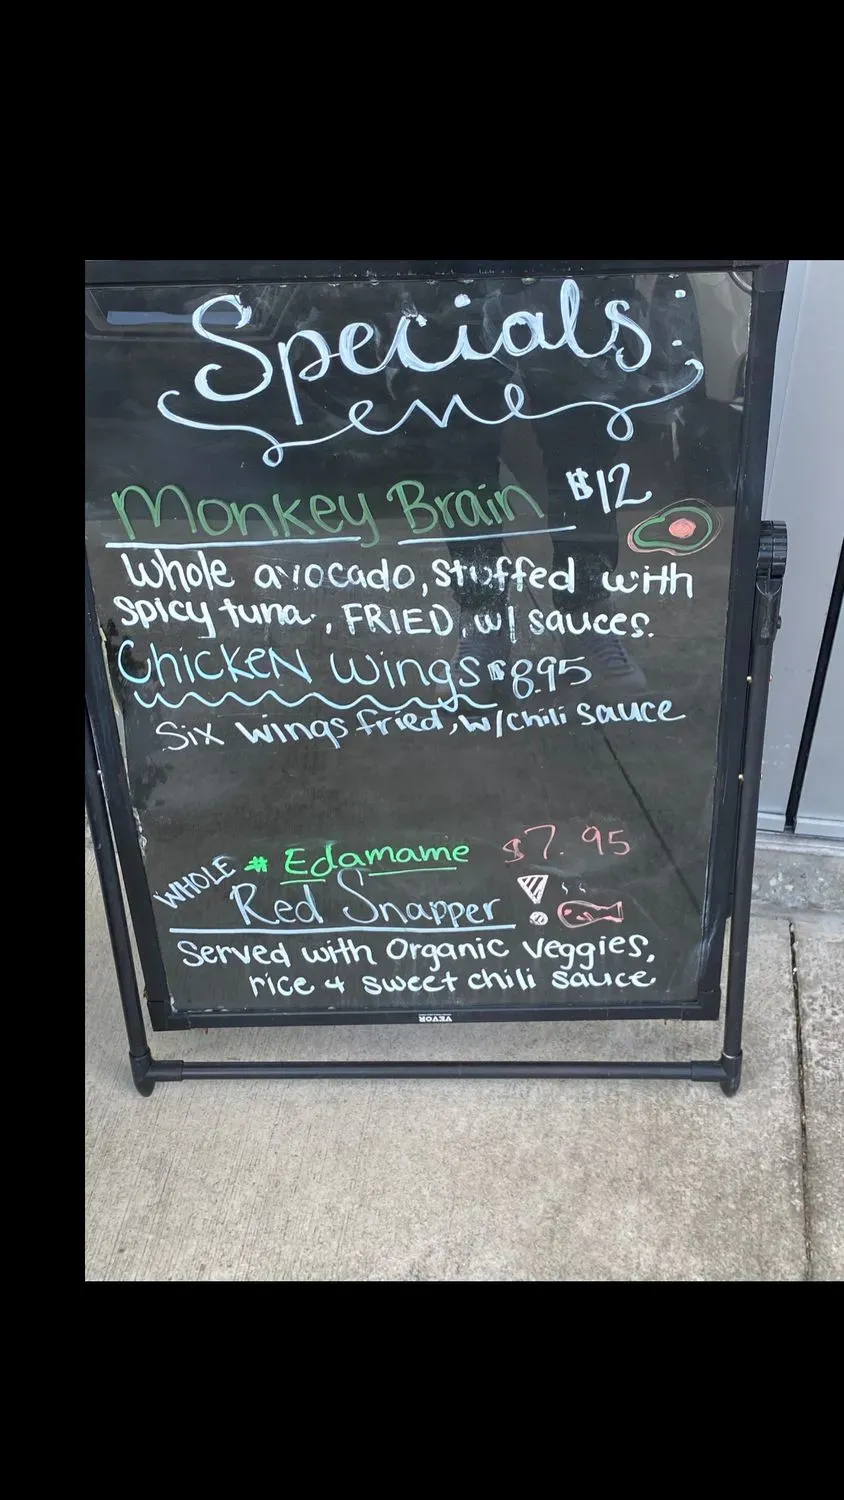 Specials:
Monkey Brain $12
Whole avocado, stuffed with
spicy tuna, FRIED, w/ sauces.
Chicken Wings $8.95
Six wings fried, w/chili sauce
* Edamame $7.95
WHOLE
Red Snapper
Served with organic veggies,
rice + sweet chili sauce
VEVOR